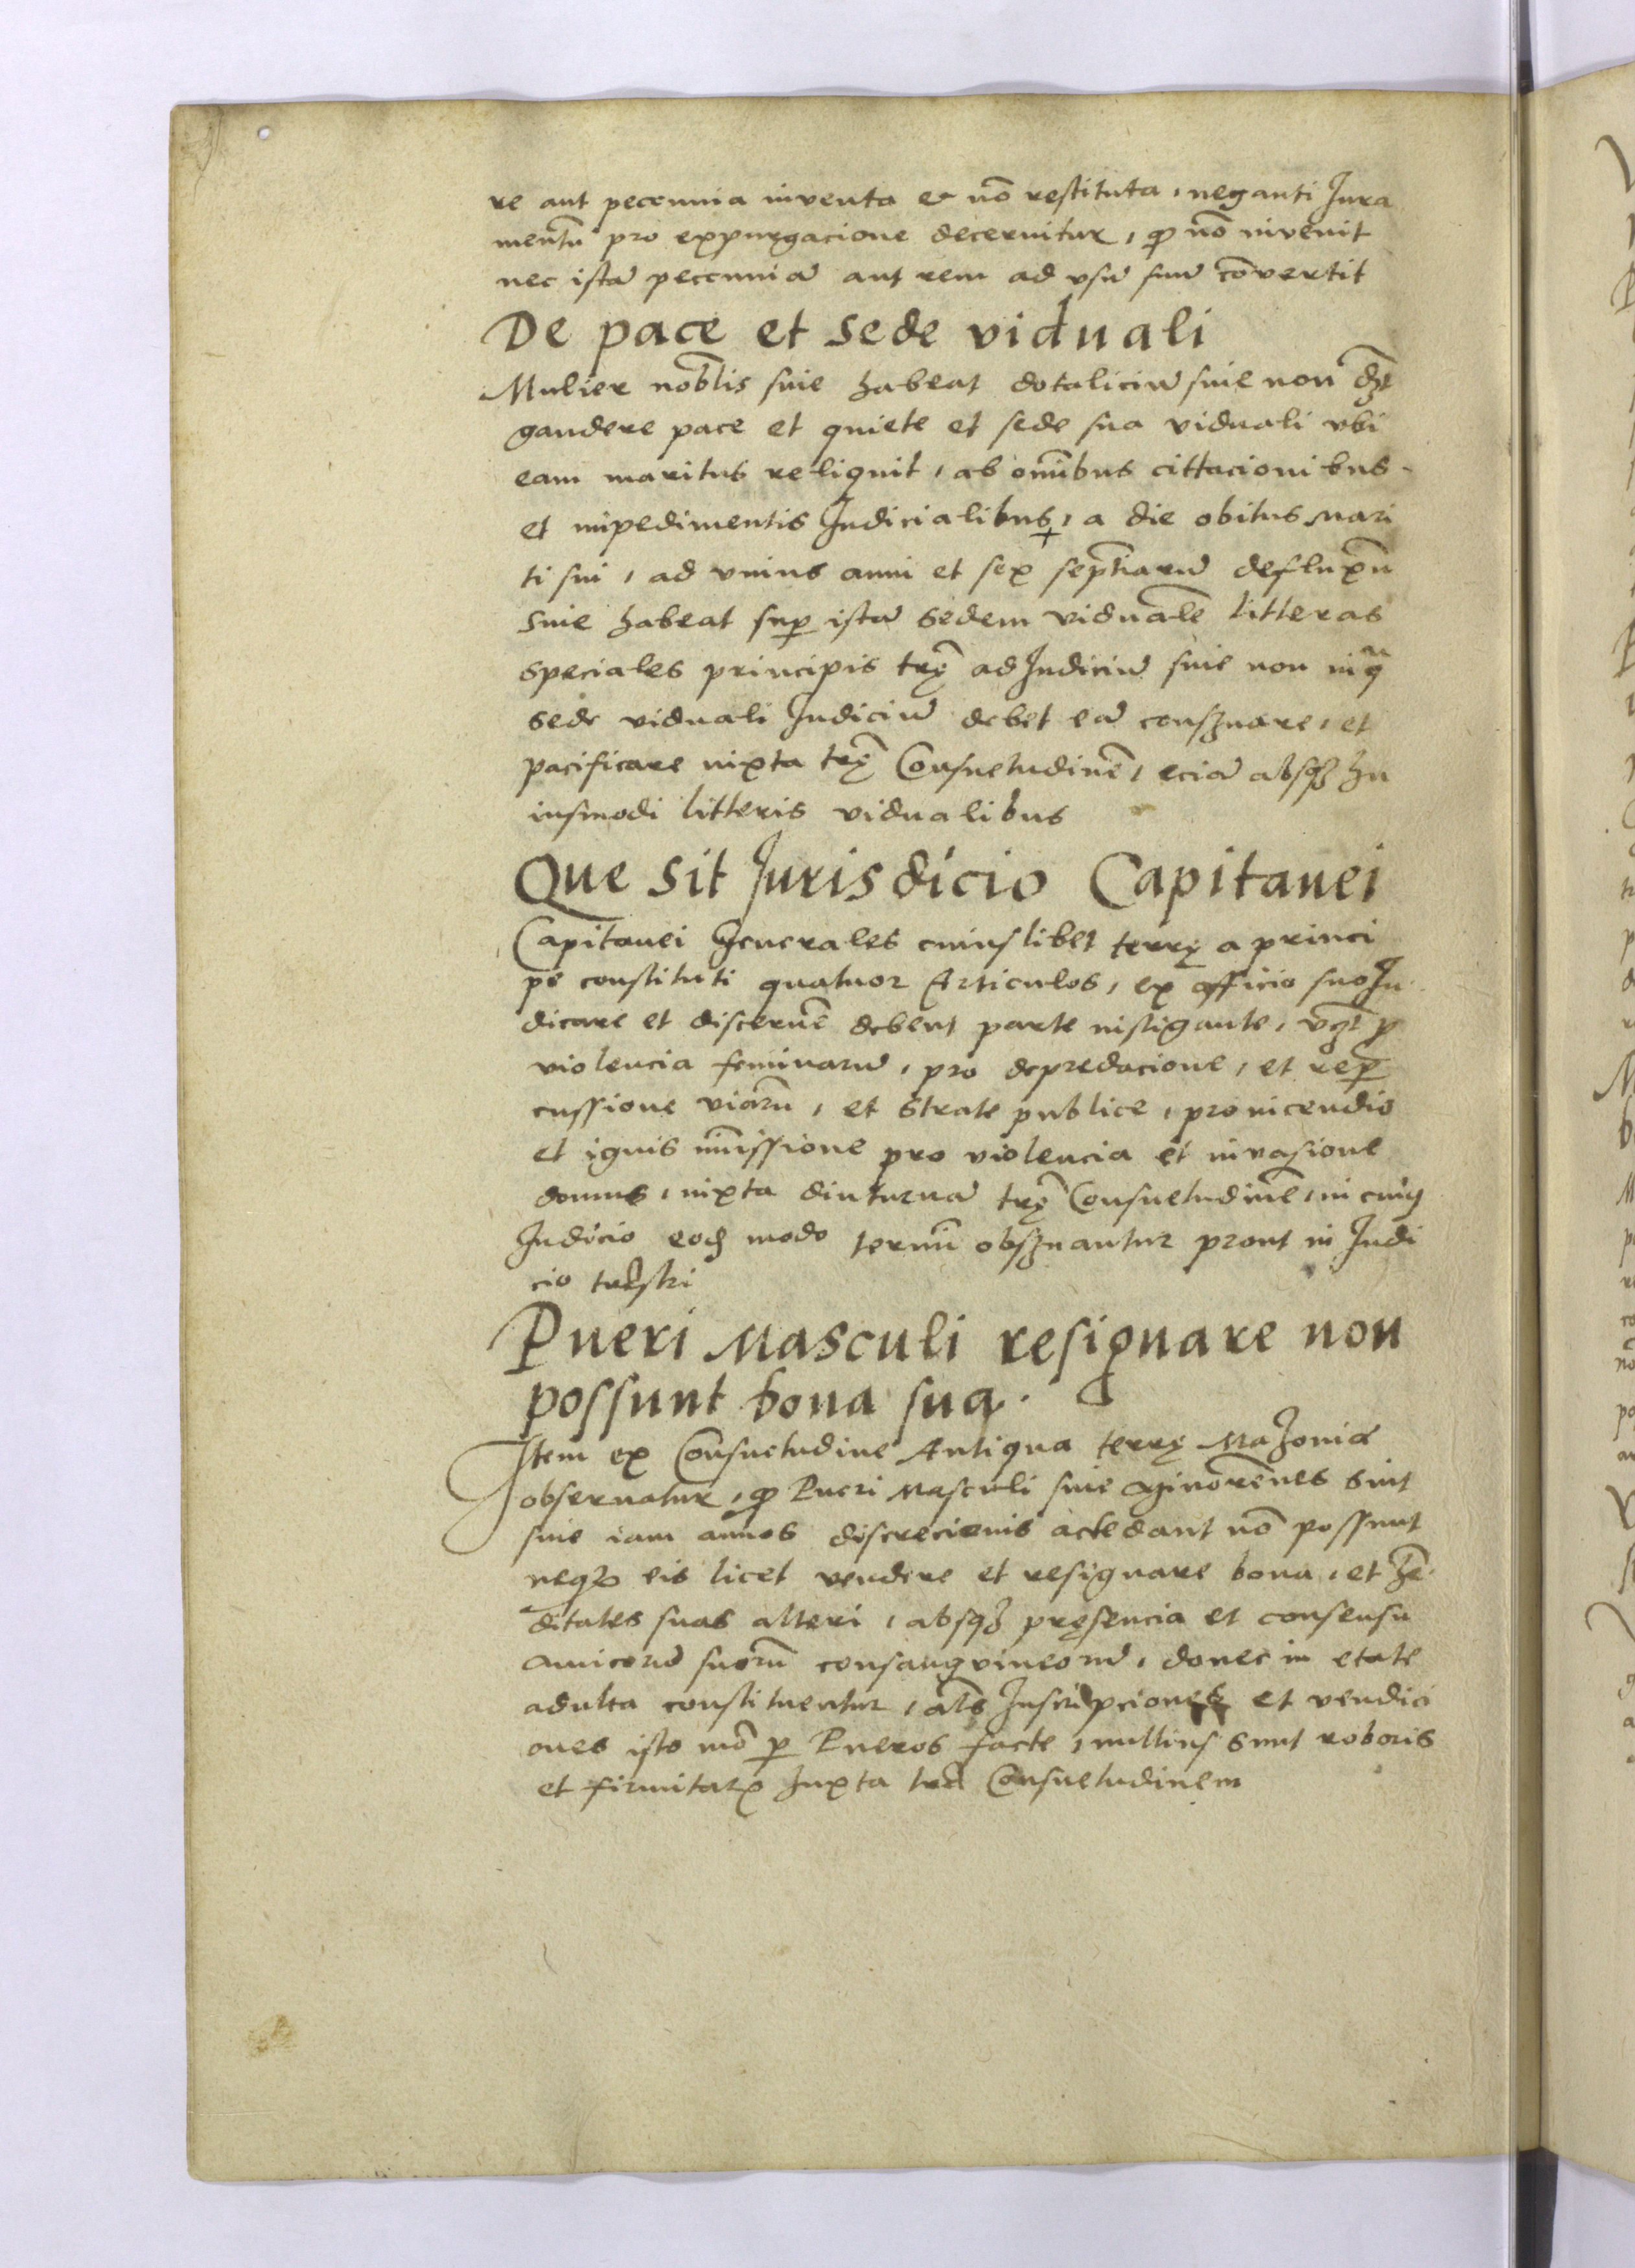 re aut peccunia inventa et nō restituta, neganti Jura
mentū pro expurgacione decernitur, ꝙ nō invenit
nec istā peccuniā aut rem ad vsū suū cōvertit
De pace et sede viduali
Mulier nobīlis siue habeat dotaliciū siue non dꝫt
gaudere pace et quiete et sede sua viduali vbi
eam maritus reliquit, ab omībus cittacionibus
et impedimentis Judicialibus, a die obitus mari
ti sui, ad vnius anni et sex septīarū defluxū
siue habeat suꝑ istā sedem vidualē litteras
speciales principis trę̄ ad Judiciū siue non
sede viduali Judiciū debet eā consꝫuare, et
pacificare iuxta trę̄ Consuetudinē, eciā absqꝫ hu
iusmodi litteris vidualibus
Que sit Jurisdicio Capitanei
Capitanei Generales cuiuslibet terrę a princi
pe constituti quatuor Articulos, ex officio suo Ju
dicare et discernē debent parte instigante, vꝫt ꝓ
violencia feminarū, pro depredacione, et reꝑ
cussione viarū, et strate publice, pro incendio
et ignis īmissione pro violencia et invasione
domus, iuxta diuturnā trę̄ Consuetudinē, in cuiꝰ
Judicio eodē modo termī obsꝫuantur prout in Judi
cio trēstri
Pueri Masculi resignare non
possunt bona sua.
Item ex Consuetudine Antiqua terrę Mazouiæ
obseruatur, ꝙ Pueri Masculi siue minorēnes sint
siue iam annos discrecionis actedant nō possunt
neqꝫ eis licet vendere et resignare bona, et hē
ditates suas alteri, absqꝫ pręsencia et consensu
amicorū suorū consangvineorū, donec in etate
adulta constituentur, als̄ Inscripciones et vendici
ones isto mō ꝑ Pueros facte, nullius sunt roboris
et firmitatꝭ Juxta trē Consuetudinem